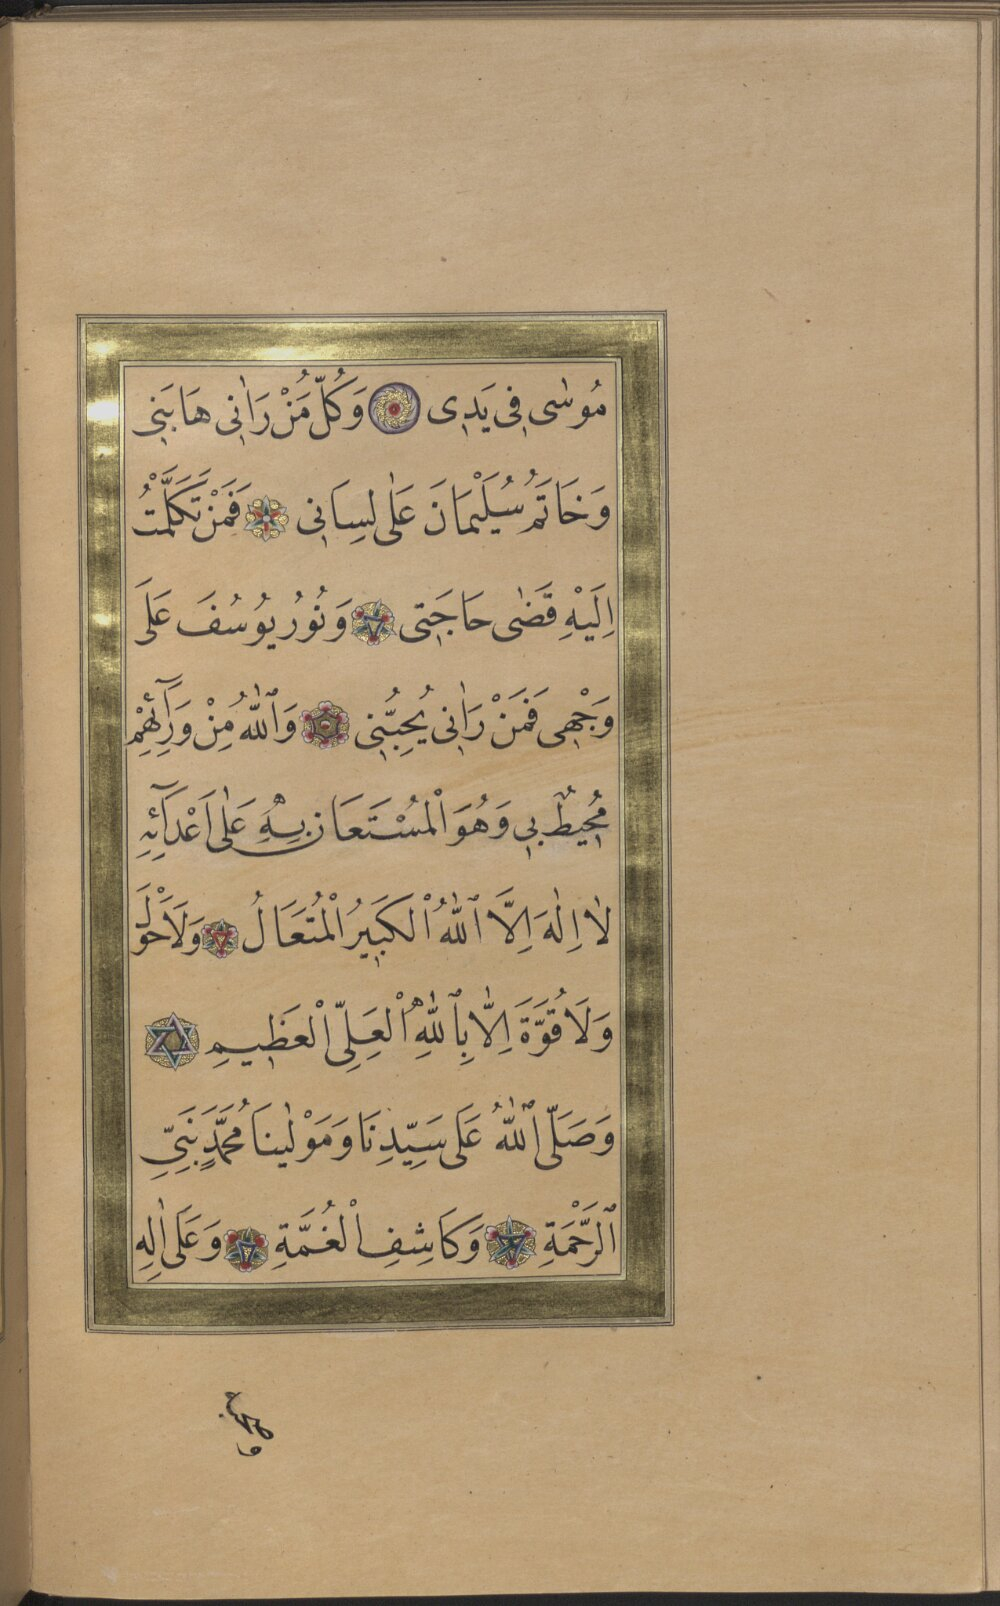 مُوسٰى فِى يَدِى وَكُلُّ مَنْ رَاٰنِى هَابَنِى
وَخَاتَمُ سُلَيْمَانَ عَلٰى لِسَانِى فَمَنْ تَكَلَّمْتُ
اِلَيْهِ قَضٰى حَاجَتِى وَنُورُ يُوسُفَ عَلَى
وَجْهِى فَمَنْ رَاٰنِى يُحِبُّنِى وَٱللّٰهُ مِنْ وَرَآئِهِمْ
مُحِيطٌ بِى وَهُوَ الْمُسْتَعَانُ بِهِ عَلٰى اَعْدَآئِهِ
لَا اِلٰهَ اِلَّا ٱللّٰهُ ٱلْكَبِيرُ الْمُتَعَالُ وَلَا حَوْلَ
وَلَا قُوَّةَ اِلَّا بِٱللّٰهِ ٱلْعَلِىِّ الْعَظِيمِ
وَصَلَّى ٱللّٰهُ عَلَى سَيِّدِنَا وَمَوْلٰينَا مُحَمَّدٍ نَبِىِّ
ٱلرَّحْمَةِ وَكَاشِفِ الْغُمَّةِ وَعَلَى اٰلِهِ
وصحبه